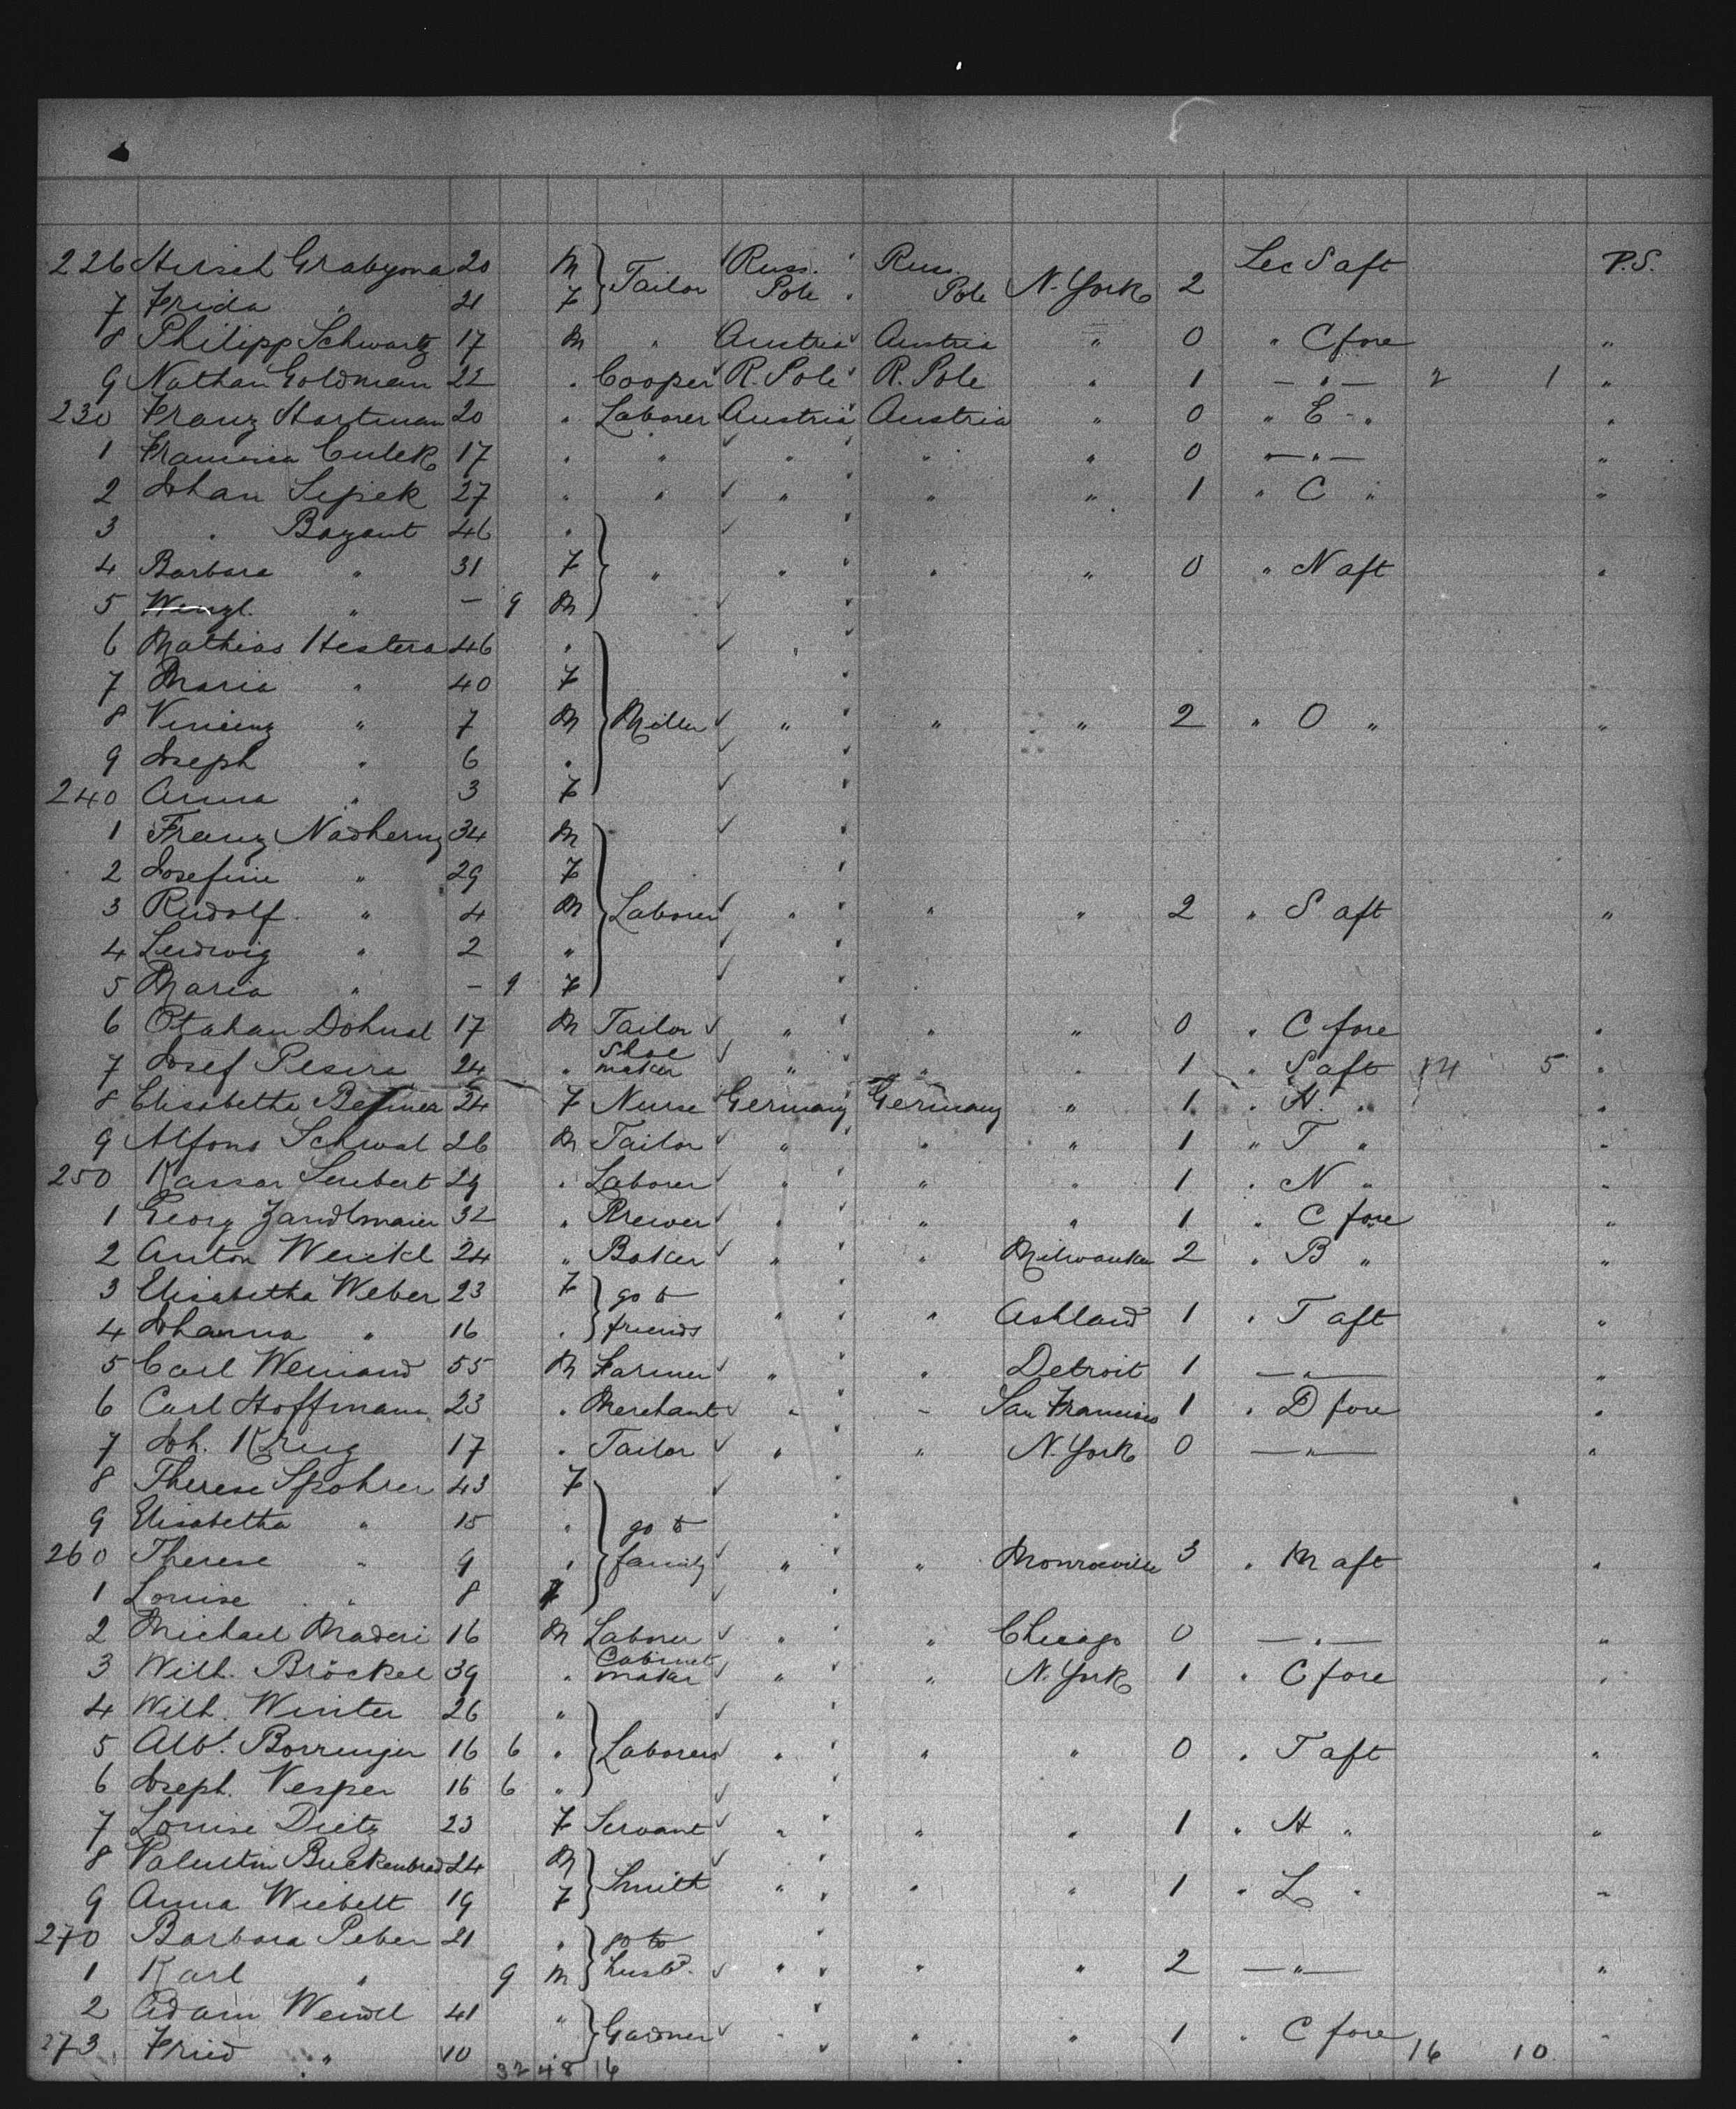 226 Hirsch Grabyona 20 M Tailor Russ. Pole Russ. Pole N. York 2 Lec S aft P.S.
7 Frida " 21 F
8 Philipp Schwartz 17 M " Austria Austria " 0 " C fore "
9 Nathan Goldman 22 " Cooper R. Pole R. Pole " 1 — " — 2 1 "
230 Franz Hartman 20 " Laborer Austria Austria " 0 " E " "
1 Culek 17 " " " " " 0 — " — "
2 Johan 27 " " " " " 1 " C " "
3 " Bazant 46 "
4 Barbara " 31 F " " " " 0 " N aft "
5 Wenzl. " - 9 M
6 Mathias Hestera 46 "
7 Maria " 40 F
8 Vincenz " 7 M Miller " " " 2 " O " "
9 Joseph " 6 "
240 Anna " 3 F
1 Franz Nadherny 34 M
2 Josefine " 29 F
3 Rudolf " 4 M Laborer " " " 2 " S aft "
4 Ludwig " 2 "
5 Maria " - 9 F
6 Dohnal 17 M Tailor " " " 0 " C fore "
7 Josef 24 " Shoe maker " " " 1 " S aft 14 5 "
8 Elisabetha 24 F Nurse Germany Germany " 1 " H. " "
9 Alfons Schwal 26 M Tailor " " " 1 " T " "
250 Seubert 29 " Laborer " " " 1 " N " "
1 Georg Zandlmaier 32 " Brewer " " " 1 " C fore "
2 Anton Weickl 24 " Baker " " Milwaukee 2 " B " "
3 Elisabetha Weber 23 F go to
4 Johanna " 16 " friends " " Ashland 1 " T aft "
5 Carl Weinand 55 M Farmer " " Detroit 1 — " — "
6 Carl Hoffmann 23 " Merchant " " San Francisco 1 " D fore "
7 Joh. Krug 17 " Tailor " " N. York 0 — " — "
8 Therese Spohrer 43 F
9 Elisabetha " 15 " go to
260 Therese " 9 " family " " Monroeville 3 " M aft "
1 Louise " 8 F
2 Michael Maderi 16 M Laborer " " Chicago 0 — " — "
3 Wilh. Bröckel 39 " Cabinet maker " " N. York 1 " C fore "
4 Wilh. Winter 26 "
5 Albt. Borrenger 16 6 " Laborers " " " 0 " T aft "
6 Joseph. Vesper 16 6 "
7 Louise Dietz 23 F Servant " " " 1 " H " "
8 Valentin Buckenbrad 24 M
9 Anna Wiebelt 19 F Smith " " " 1 " L " "
270 Barbara Peber 21 " go to
1 Karl " 9 M husbd. " " " 2 — " — "
2 Adam Weidl 41 "
273 Fried " 10 Gardner " " " 1 " C fore 16 10 "
32 48 16